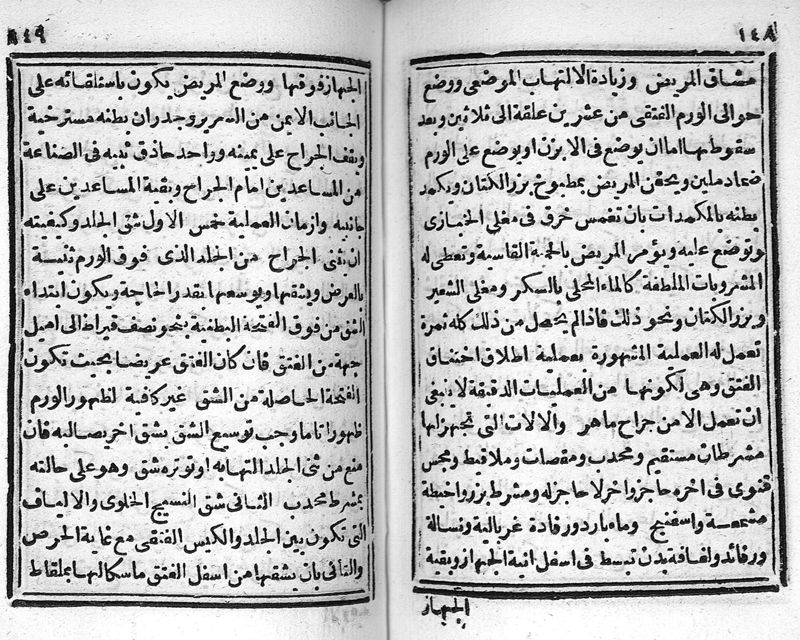 ١٤٨
مشاق المريض وزيادة الالتهاب الموضعى ووضع
حوالى الورم الفتقى من عشرين علقة الى ثلاثين وبعد
سقوطها اما ان يوضع فى الابزن او يوضع على الورم
ضماد ملين ويحقن المريض بمطبوخ بزر الكتان ويكمد
بطنه بالمكمدات بان تغمس خرق فى مغلى الخبازى
وتوضع عليه ويؤمر المريض بالحمية القاسية وتعطى له
المشروبات الملطفة كالماء المحلى بالسكر ومغلى الشعير
وبزر الكتان ونحو ذلك فاذا لم يحصل من ذلك كله ثمرة
تعمل له العملية المشهورة بعملية اطلاق اختناق
الفتق وهى لكونها من العمليات الدقيقة لا ينبغى
ان تعمل الا من جراح ماهر والالات التى تجهز لها
مشرطان مستقيم ومحدب ومقصات وملاقيط ومجس
قنوى فى اخره حاجز واخر لا حاجز له ومشرط بزر واخيطة
مشمعة واسفنج وماء بارد ورفادة غربالية ونسالة
ورفائد ولفافة بدن تبسط فى اسفل انية الجهاز وبقية
الجهاز
٨٤٩
الجهاز فوقها ووضع المريض يكون باستلقائه على
الجانب الايمن من السرير وجدران بطنه مسترخية
ويقف الجراح على يمينه وواحد حاذق نبيه فى الصناعة
من المساعدين امام الجراح وبقية المساعدين على
جانبيه وازمان العملية خمس الاول شق الجلد وكيفيته
ان يثنى الجراح من الجلد الذى فوق الورم ثنيسة
بالعرض ويشقها ويوسعها بقدر الحاجة ويكون ابتداء
الشق من فوق الفتحة البطنية بنحو نصف قيراط الى اسفل
جهة من الفتق فان كان الفتق عريضا بحيث تكون
الفتحة الحاصلة من الشق غير كافية لظهور الورم
ظهورا تاما وجب توسيع الشق بشق اخر يصالبه فان
منع من ثنى الجلد التهابه او توتره شق وهو على حالته
بمشرط محدب الثانى شق النسيج الخلوى والالياف
التى تكون بين الجلد والكيس الفتقى مع غاية الحرص
والتانى بان يشقها من اسفل الفتق ماسكا لها بملقاط